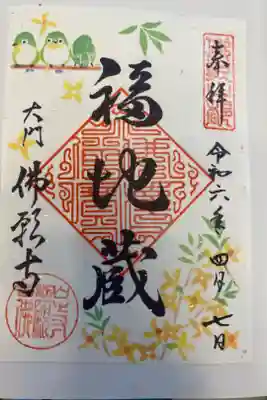 奉拝
令和六年四月七日
福地蔵
大門
佛願寺